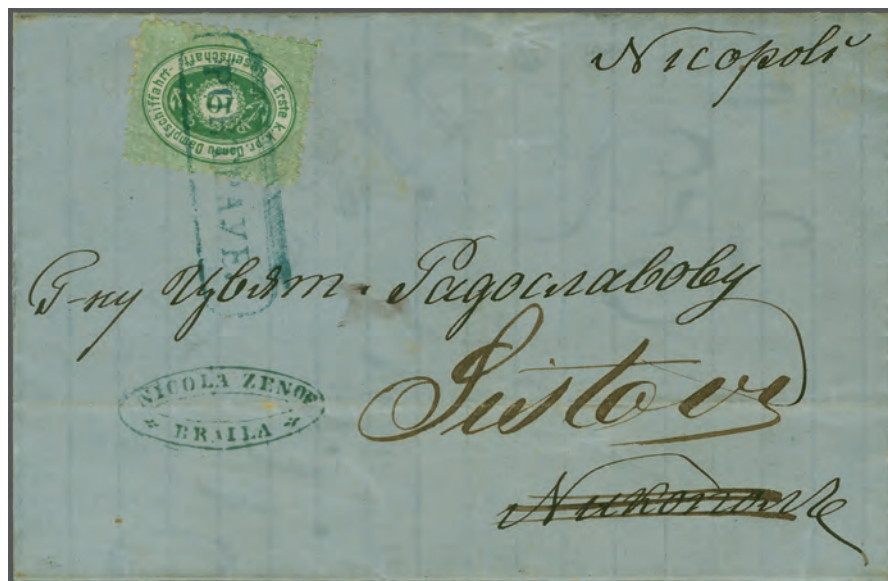 Nicopoli
Erste k. k. pr. Donau Dampfschiffahrt-
Gesellschaft
10
Г-ну Цвѣт. Радославову
Sistov
NICOLA ZENOF
BRAILA
Никополъ